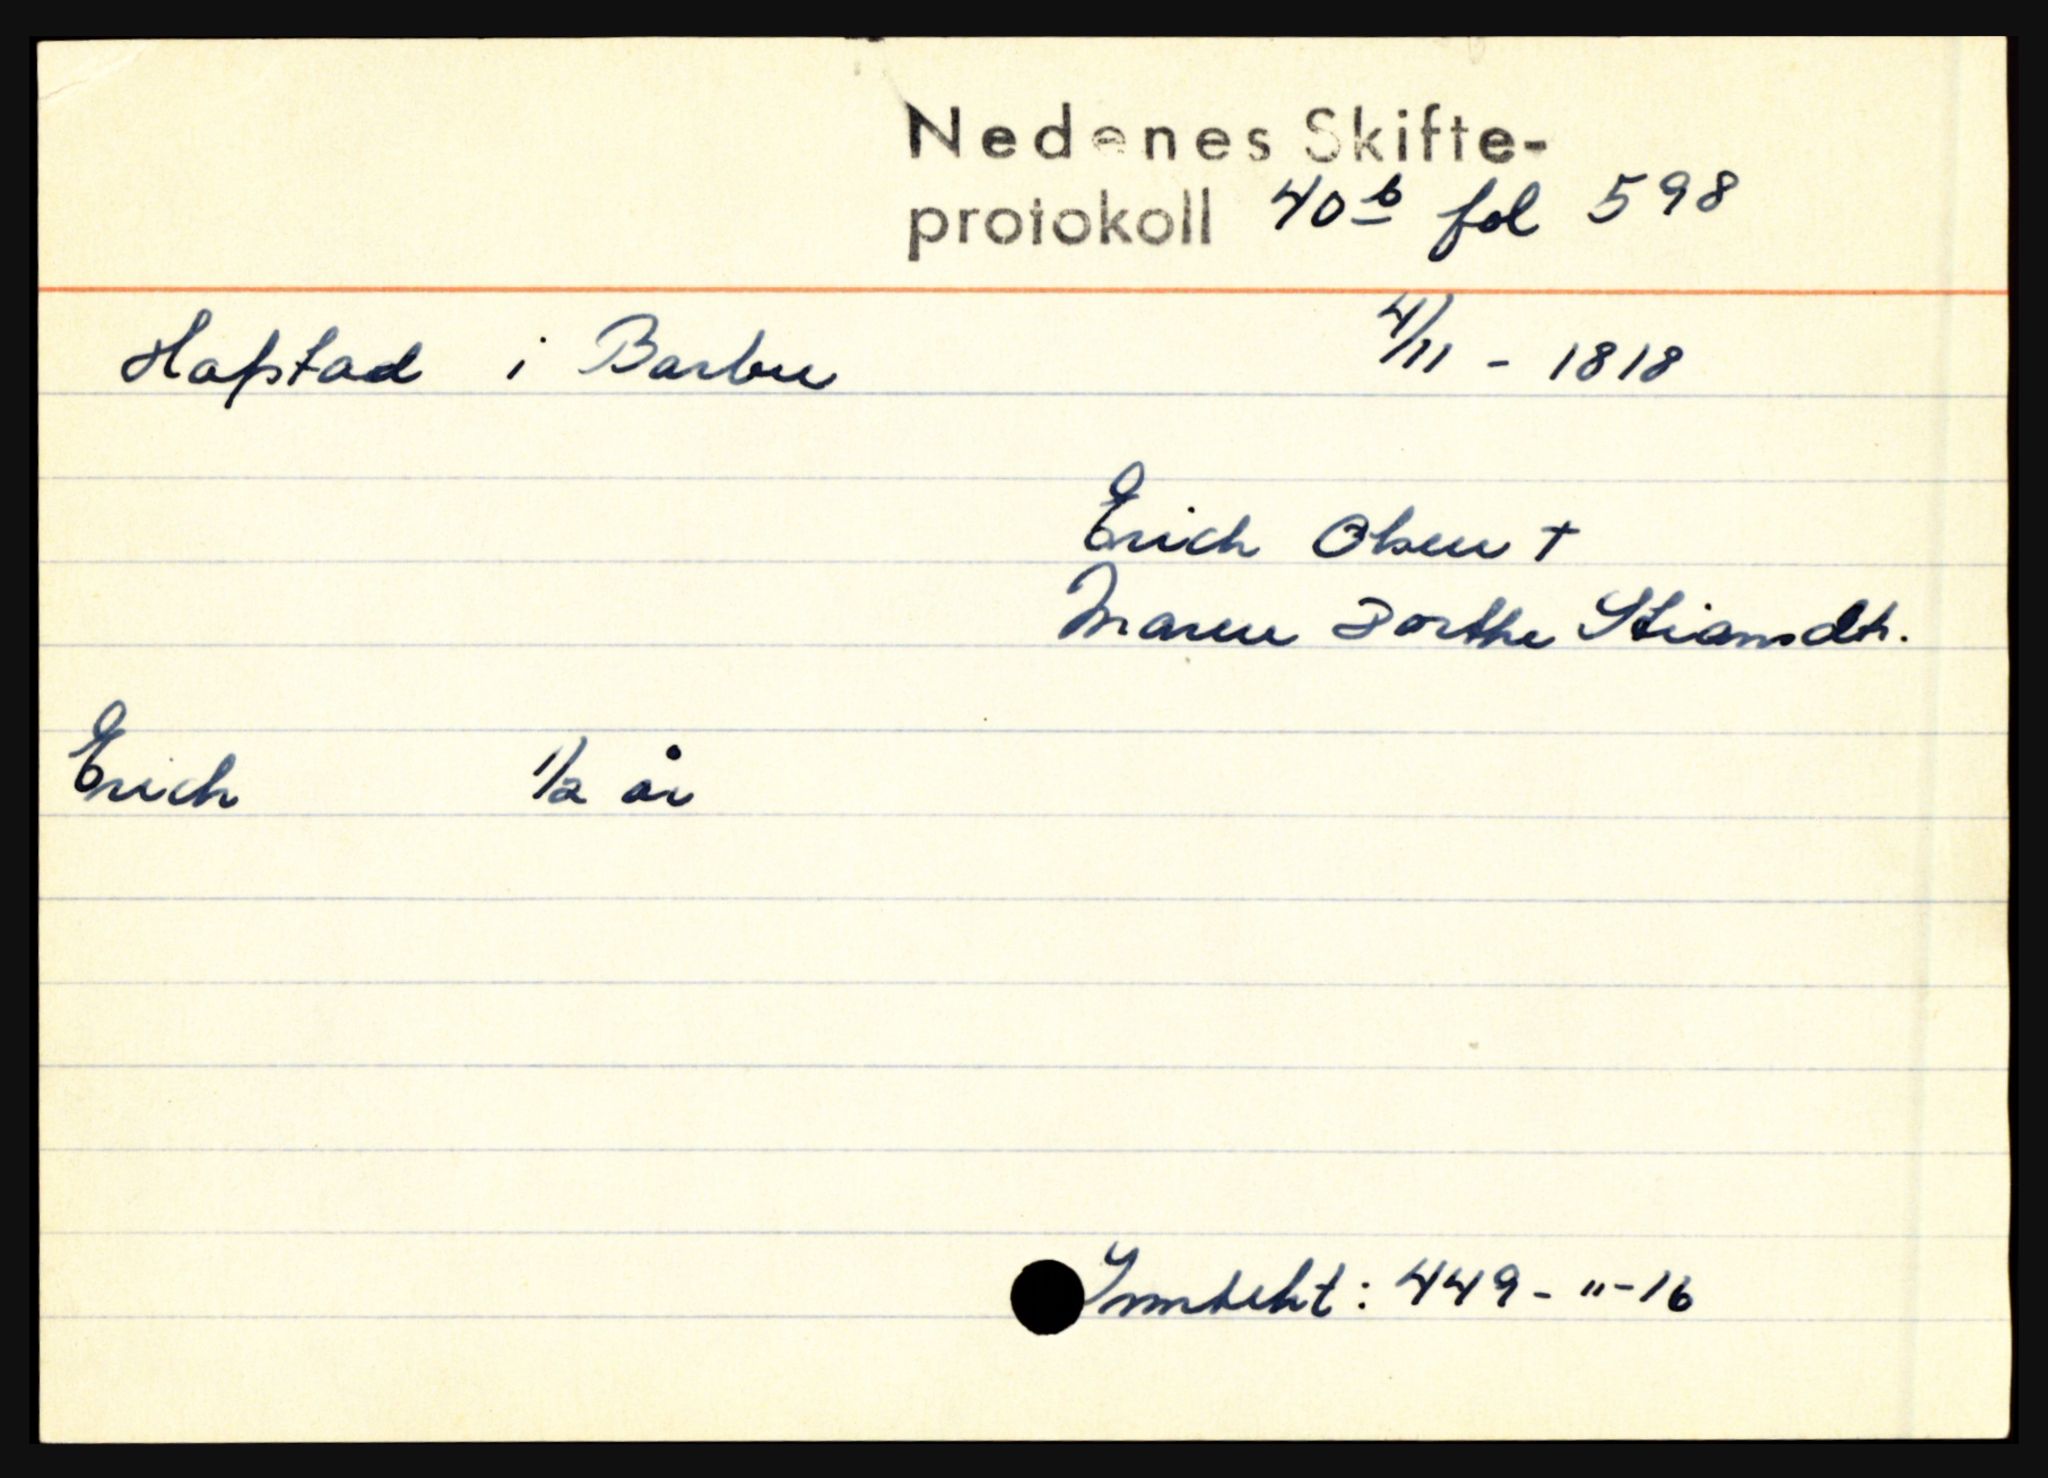 Nedenes Skifte-
protokoll 40b fol 598
Hafstad i Barbu 4/11 - 1818
Erich Olsen +
Maren Dorthe Stiansdtr.
Erich 1/2 år
Inntekt: 449 - " - 16